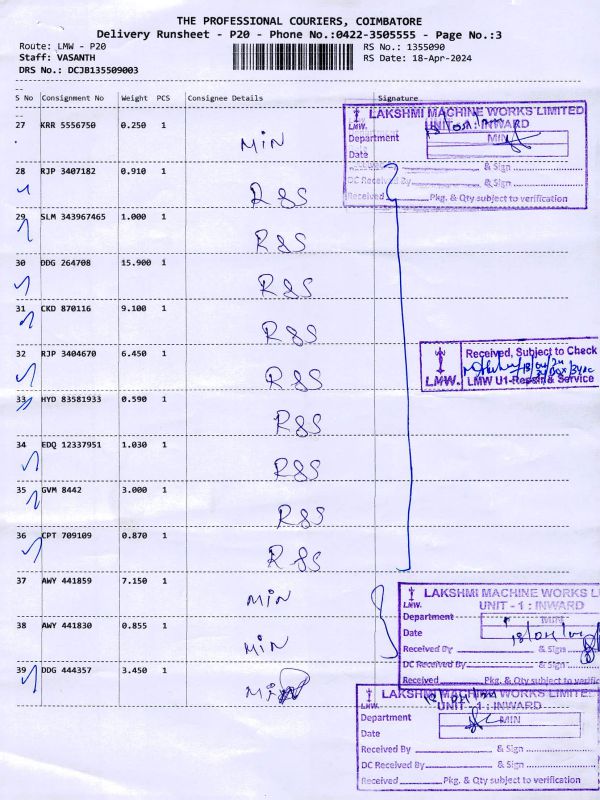 THE PROFESSIONAL COURIERS, COIMBATORE
Delivery Runsheet - P20 - Phone No.:0422-3505555 - Page No.:3
Route: LMW - P20 RS No.: 1355090
Staff: VASANTH RS Date: 18-Apr-2024
DRS No.: DCJB135509003
S No Consignment No Weight PCS Consignee Details Signature
27 KRR 5556750 0.250 1 MIN
28 RJP 3407182 0.910 1 R&S
29 SLM 343967465 1.000 1 R&S
30 DDG 264708 15.900 1 R&S
31 CKD 870116 9.100 1 R&S
32 RJP 3404670 6.450 1 R&S
33 HYD 83581933 0.590 1 R&S
34 EDQ 12337951 1.030 1 R&S
35 GVM 8442 3.000 1 R&S
36 CPT 709109 0.870 1 R&S
37 AWY 441859 7.150 1 MIN
38 AWY 441830 0.855 1 MIN
39 DDG 444357 3.450 1 MIN
LAKSHMI MACHINE WORKS LIMITED
LMW. UNIT - 1 : INWARD
Department MIN
Date
& Sign
DC Received By & Sign
Received Pkg. & Qty subject to verification
Received, Subject to Check
LMW. LMW U1-Repair & Service
LAKSHMI MACHINE WORKS L
LMW. UNIT - 1 : INWARD
Department MIN
Date 18/04/24
Received By & Sign
DC Received By & Sign
Received Pkg. & Qty subject to verific
LAKSHMI MACHINE WORKS LIMITE
LMW. UNIT - 1 : INWARD
Department MIN
Date
Received By & Sign
DC Received By & Sign
Received Pkg. & Qty subject to verification